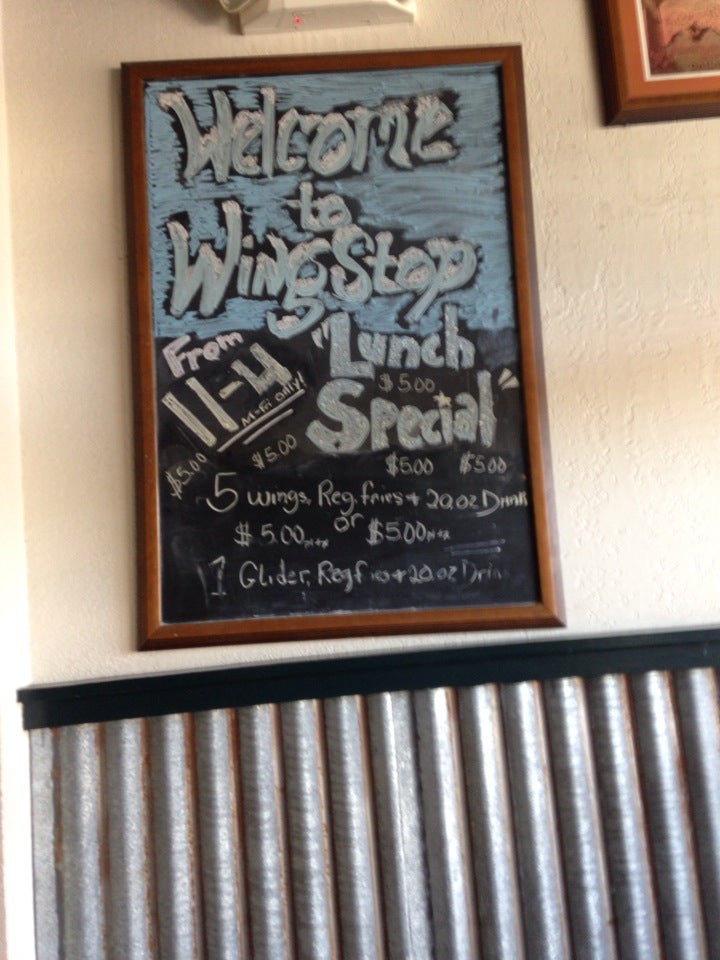 Welcome
to
WingStop
From
11-4
M-Fri only!
"Lunch
$5.00
Special"
$5.00 $5.00 $5.00 $5.00
5 wings, Reg. fries + 20oz Drink
or
$5.00 $5.00
1 Glider, Reg fries + 20oz Drink